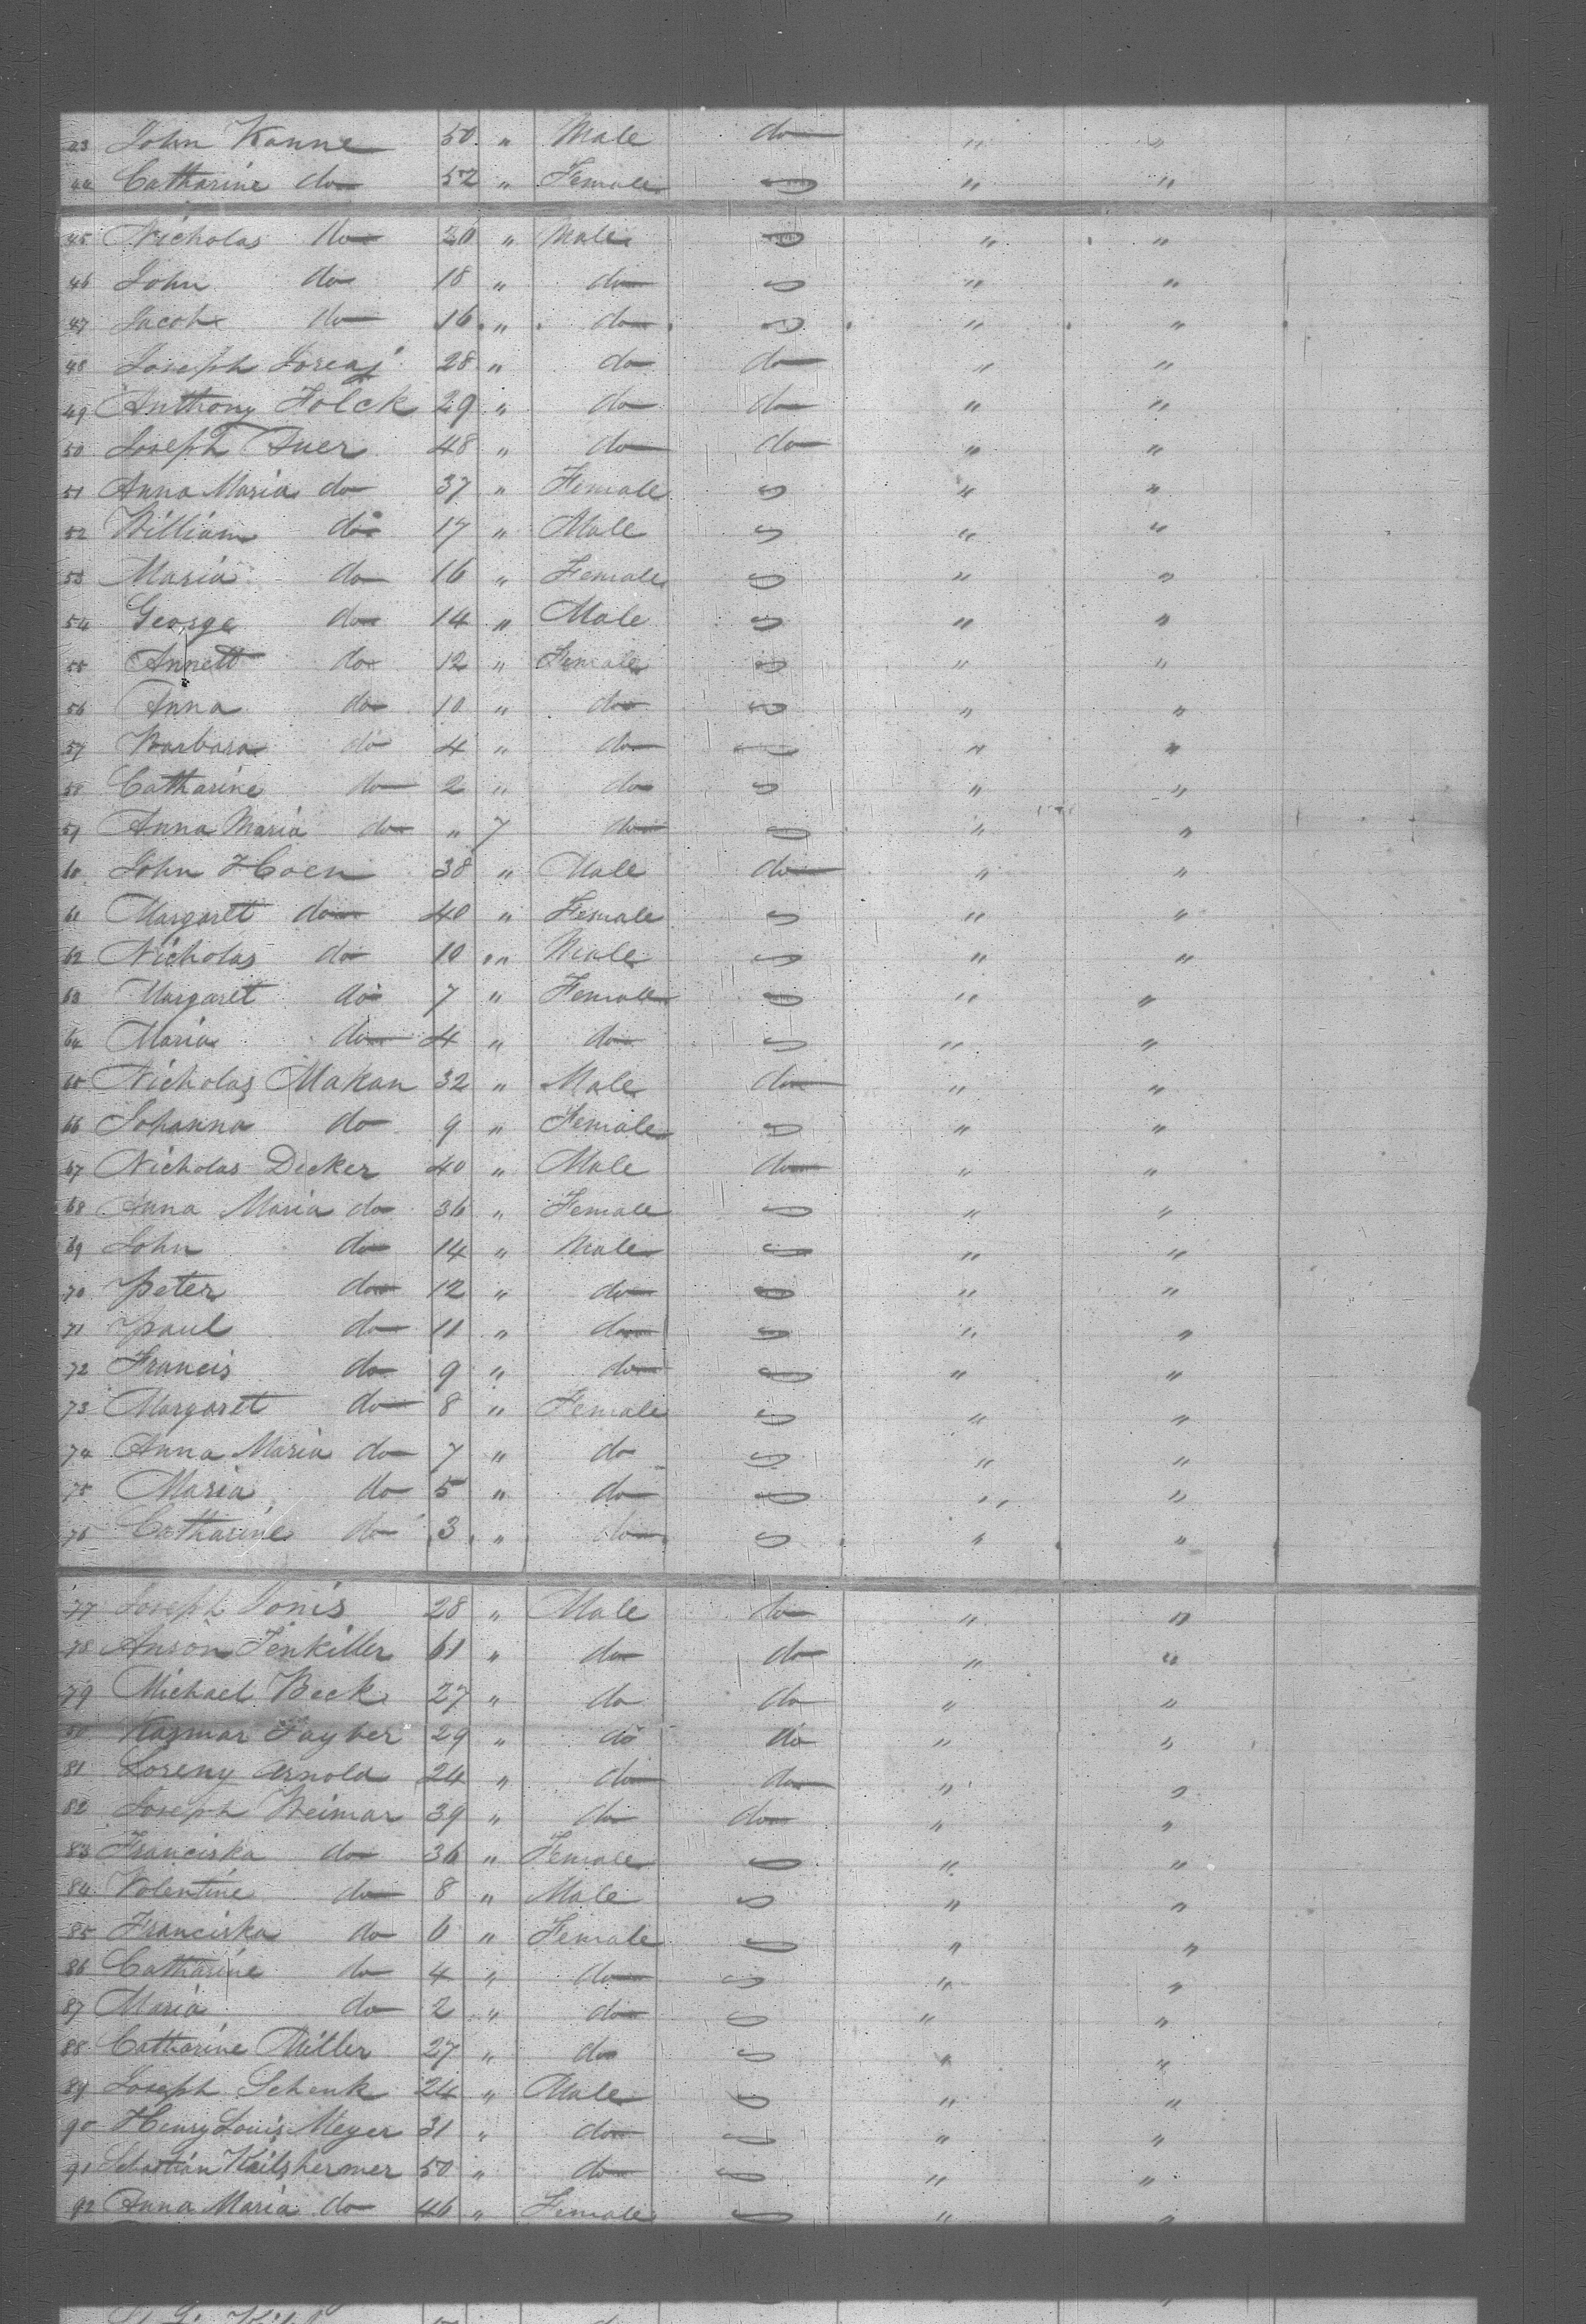 23 John Kanne 50 " Male do " "
44 Catharine do 52 " Female " "
45 Nicholas do 20 " Male " "
46 John do 18 " do " "
47 Jacob do 16 " do " "
48 Joseph 28 " do do " "
49 Anthony Folck 29 " do do " "
50 Joseph Auer 48 " do do " "
51 Anna Maria do 37 " Female " "
52 William do 17 " Male " "
53 Maria do 16 " Female " "
54 George do 14 " Male " "
55 Annett do 12 " Female " "
56 Anna do 10 " do " "
57 Barbara do 4 " do " "
58 Catharine do 2 " do " "
59 Anna Maria do " 7 do " "
60 John Hoen 38 " Male do " "
61 Margaret do 40 " Female " "
62 Nicholas do 10 " Male " "
63 Margaret do 7 " Female " "
64 Maria do 4 " do " "
65 Nicholas Makan 32 " Male do " "
66 Johanna do 9 " Female " "
67 Nicholas Decker 40 " Male do " "
68 Anna Maria do 36 " Female " "
69 John do 14 " Male " "
70 Peter do 12 " do " "
71 Paul do 11 " do " "
72 Francis do 9 " do " "
73 Margaret do 8 " Female " "
74 Anna Maria do 7 " do " "
75 Maria do 5 " do " "
76 Catharine do 3 " do " "
77 Joseph 28 " Male do " "
78 Anson Tenkiller 61 " do do " "
79 Michael Beck 27 " do do " "
80 Kasmar Fayber 29 " do do " "
81 Loreny Arnold 24 " do do " "
82 Joseph Weimar 39 " do do " "
83 Franciska do 36 " Female " "
84 Volentine do 8 " Male " "
85 Franciska do 6 " Female " "
86 Catharine do 4 " do " "
87 Maria do 2 " do " "
88 Catharine Miller 27 " do " "
89 Joseph Schenk 24 " Male " "
90 Henry Louis Meyer 31 " do " "
91 Sebastian 50 " do " "
92 Anna Maria do 46 " Female " "